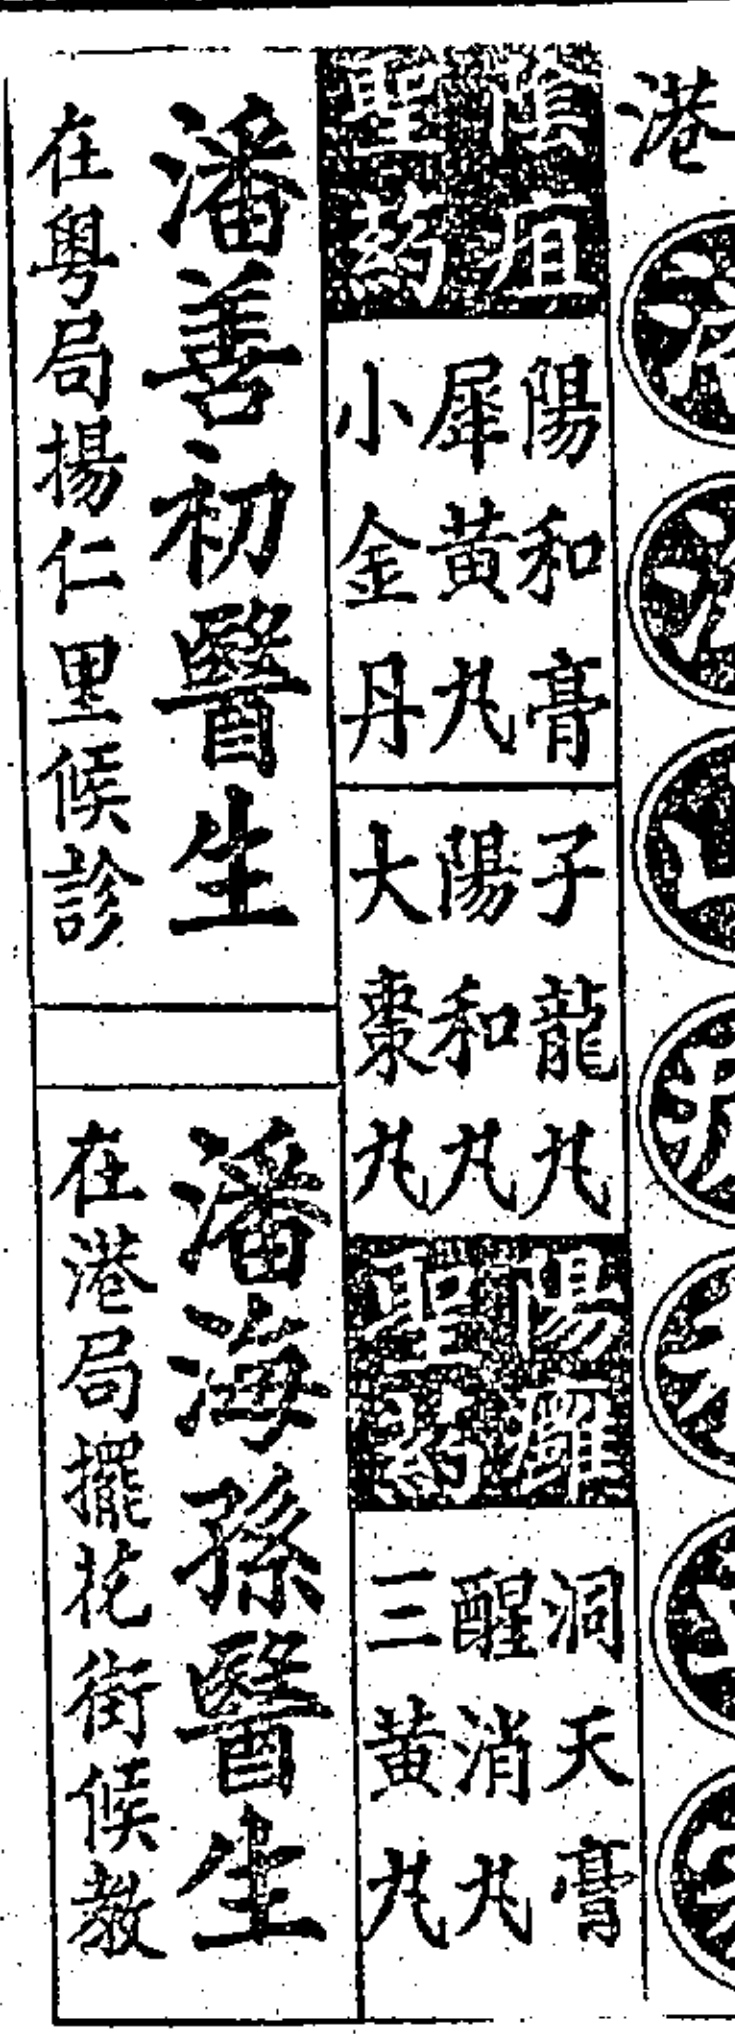 港
陰疽
聖药
陽和膏
犀黃丸
小金丹
子龍丸
陽和丸
大棗丸
陽癰
聖药
洞天膏
醒消丸
三黃丸
潘善初醫生
在粵局揚仁里候診
潘海孫醫生
在港局擺花街候教